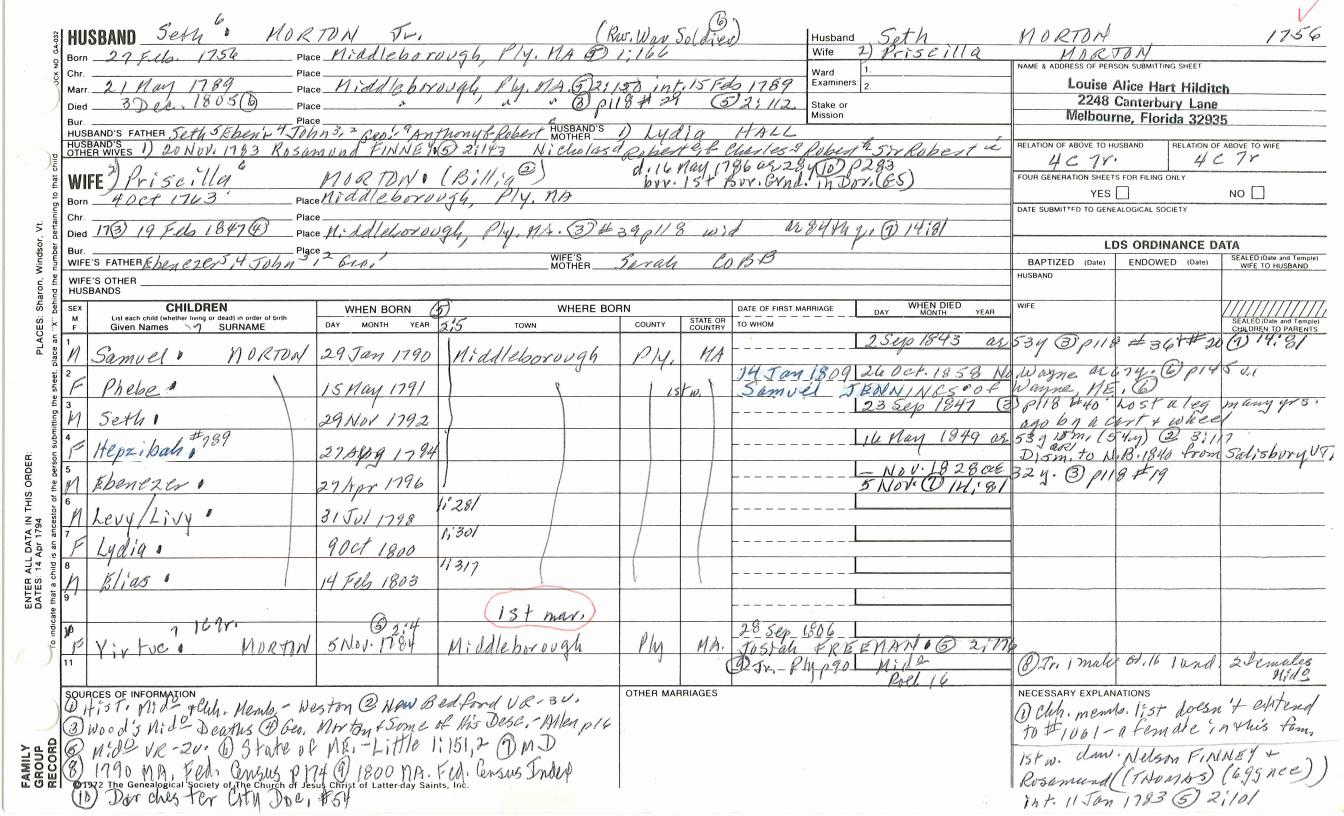 HUSBAND Seth 6 MORTON Jr. (Rev. War Soldier) (6)
Born 27 Feb. 1756 Place Middleborough, Ply. MA (5) 1:166
Chr. Place
Marr. 21 May 1789 Place Middleborough, Ply. MA (5) 2:150 int. 15 Feb 1789
Died 3 Dec. 1805 (6) Place " " " (3) p118 #29 (5) 2:112
Bur. Place
HUSBAND'S FATHER Seth 5 Eben'r 4 John 3, 2 Geo. Anthony Robert HUSBAND'S MOTHER 1) Lydia HALL
HUSBAND'S OTHER WIVES 1) 20 Nov. 1783 Rosamund FINNEY (5) 2:143 Nicholas Robert Charles Robert Sir Robert
d. 16 May 1786 ae 28y (10) p283
bur. 1st Bur. Grnd. in Dor. (ES)
WIFE 2) Priscilla 6 MORTON (Billia (2))
Born 4 Oct 1763 Place Middleborough, Ply. MA
Chr. Place
Died 17 (3) 19 Feb 1847 (4) Place Middleborough, Ply. MA. (3) #39 p118 wid ae 84th yr. (7) 14:81
Bur. Place
WIFE'S FATHER Ebenezer 5, 4 John 3, 2 Geo. 1 WIFE'S MOTHER Sarah COBB
WIFE'S OTHER HUSBANDS
Husband Seth MORTON 1756
Wife 2) Priscilla MORTON
Ward Examiners 1. 2.
Stake or Mission
NAME & ADDRESS OF PERSON SUBMITTING SHEET
Louise Alice Hart Hilditch
2248 Canterbury Lane
Melbourne, Florida 32935
RELATION OF ABOVE TO HUSBAND RELATION OF ABOVE TO WIFE
4C 7r. 4C 7r
FOUR GENERATION SHEETS FOR FILING ONLY
YES NO
DATE SUBMITTED TO GENEALOGICAL SOCIETY
LDS ORDINANCE DATA
BAPTIZED (Date) ENDOWED (Date) SEALED (Date and Temple) WIFE TO HUSBAND
HUSBAND
WIFE
SEALED (Date and Temple) CHILDREN TO PARENTS
SEX M F CHILDREN List each child (whether living or dead) in order of birth Given Names 7 SURNAME
WHEN BORN DAY MONTH YEAR (5) 2:5 WHERE BORN TOWN COUNTY STATE OR COUNTRY
DATE OF FIRST MARRIAGE TO WHOM WHEN DIED DAY MONTH YEAR
1 M Samuel MORTON 29 Jan 1790 Middleborough Ply. MA 2 Sep 1843 ae 53y (3) p118 #36 + #20 (7) 14:81
2 F Phebe 15 May 1791 1st w. 14 Jan 1809 26 Oct. 1858 No. Wayne ae 67y. (6) p145 v.1
Samuel JENNINGS of Wayne ME. (6)
3 M Seth 29 Nov 1792 23 Sep 1847 (3) p118 #40 Lost a leg many yrs. ago by a cart + wheel
4 F Hepzibah #789 27 Aug 1794 16 May 1849 ae 53y (54y) (2) 3:117
Dism. to N.B. 1840 from Salisbury VT.
5 M Ebenezer 27 Apr 1796 – Nov. 1828 ae 32y. (3) p118 #19
5 Nov. (7) 14:81
6 M Levy/Livy 31 Jul 1798 1:281
7 F Lydia 9 Oct 1800 1:301
8 M Elias 14 Feb 1803 4317
9 1st mar.
10 F Virtue 7 MORTON 5 Nov. 1784 (5) 2:4 Middleborough Ply MA. 28 Sep 1806
Josiah FREEMAN (5) 2:776
11 (9) Jr. - Ply p90 Mido Roll 16
(8) Jr. 1 male ov. 16 1 und. 2 females Mido
SOURCES OF INFORMATION
(1) Hist. Mido + Chh. Memb. - Weston (2) New Bedford VR - 3v.
(3) Wood's Mido Deaths (4) Geo. Morton + Some of His Desc. - Allen p16
(5) Mido VR - 2v. (6) State of ME. - Little 1:151,2 (7) MD
(8) 1790 MA. Fed. Census p174 (9) 1800 MA. Fed. Census Index
©1972 The Genealogical Society of The Church of Jesus Christ of Latter-day Saints, Inc.
(10) Dorchester City Doc. #54
OTHER MARRIAGES
NECESSARY EXPLANATIONS
(1) Chh. memb. list doesn't extend
to #1061 - a female in this fam.
1st w. daw. Nelson FINNEY +
Rosamund (THOMAS)
int. 11 Jan 1783 (5) 2:101
ENTER ALL DATA IN THIS ORDER:
DATES: 14 Apr 1794
PLACES: Sharon, Windsor, Vt.
To indicate that a child is an ancestor of the person submitting the sheet, place an "X" behind the number pertaining to that child
FAMILY GROUP RECORD